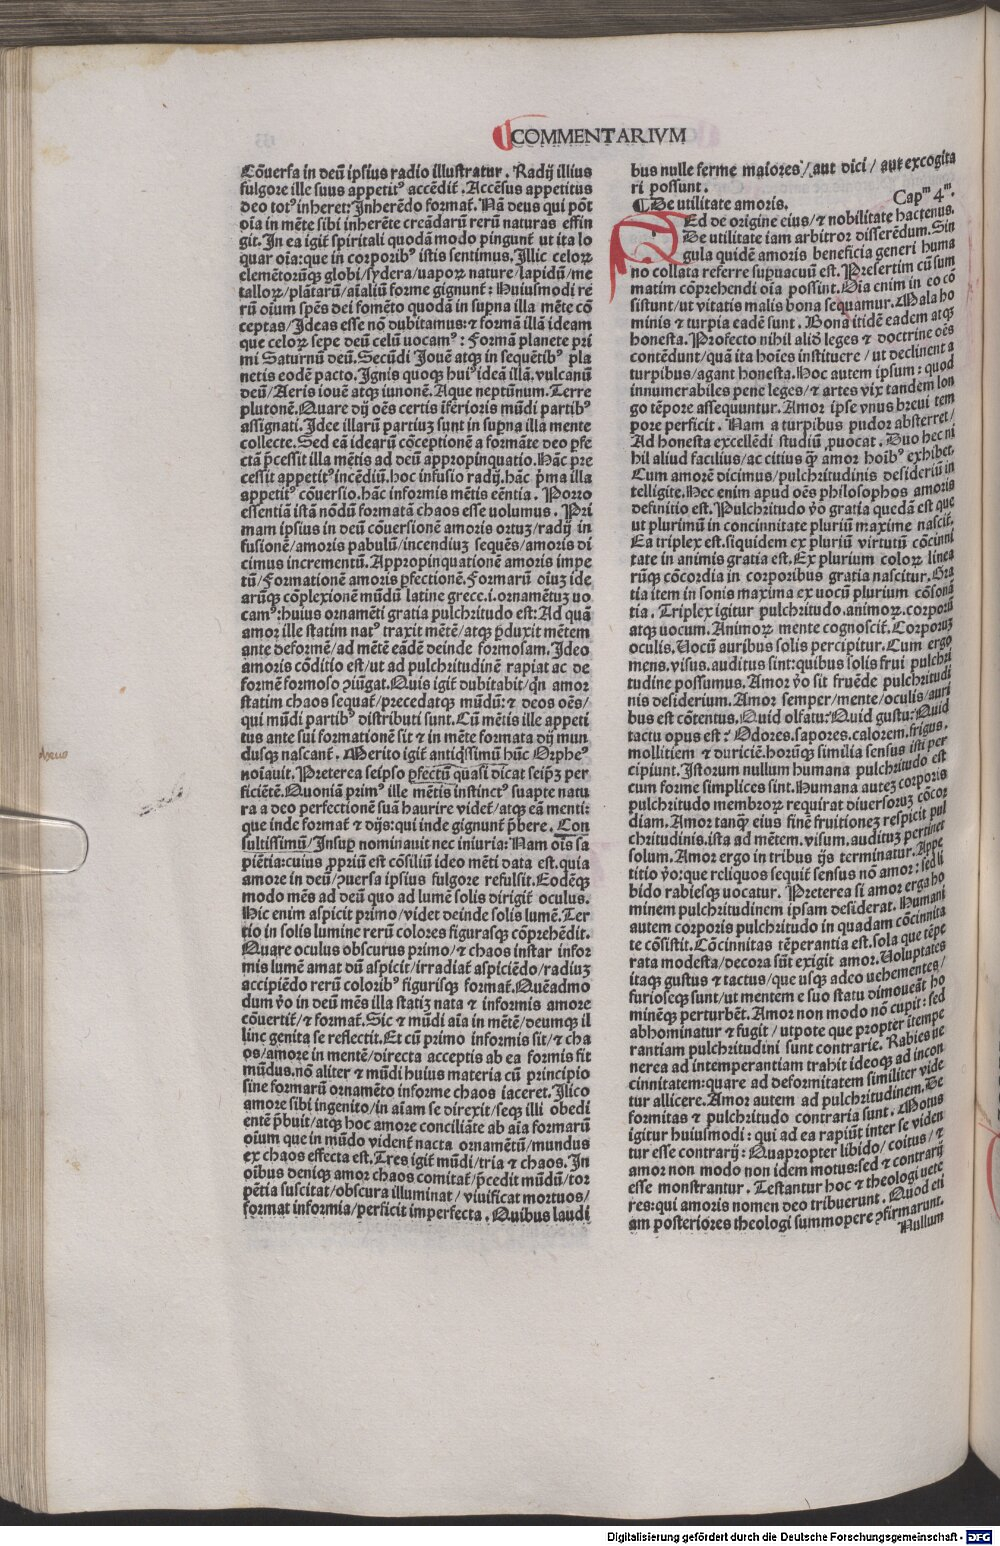 COMMENTARIVM
Cōuersa in deū ipsius radio illustratur. Radij illius
fulgore ille suus appetitꝰ accēdit̄. Accēsus appetitus
deo totꝰ inheret: Inherēdo format̄. Nā deus qui pōt
oīa in mēte sibi inherēte creādarū rerū naturas effin
git. In ea igit̄ spiritali quodā modo pingunt̄ ut ita lo
quar oīa: que in corporibꝰ istis sentimus. Illic celoꝝ
elemētorūqꝫ globi/ sydera/ uapoꝝ nature/ lapidū/ me
talloꝝ/ plātarū/ aīaliū forme gignunt̄: Huiusmodi re
rū oīum spēs dei fomēto quodā in supna illa mēte cō
ceptas/ Ideas esse nō dubitamus: ⁊ formā illā ideam
que celoꝝ sepe deū celū uocamꝰ: Formā planete pri
mi Saturnū deū. Secūdi Iouē atqꝫ in sequētibꝰ pla
netis eodē pacto. Ignis quoqꝫ huiꝰ ideā illā. vulcanū
deū/ Aeris iouē atqꝫ iunonē. Aque neptūnum. Terre
plutonē. Quare dij oēs certis īferioris mūdi partibꝰ
assignati. Idee illarū partiuꝫ sunt in supna illa mente
collecte. Sed eā idearū cōceptionē a formāte deo ꝑfe
ctā p̄cessit illa mētis ad deū appropinquatio. Hāc p̄e
cessit appetitꝰ incēdiū. hoc infusio radij. hāc p̄ma illa
appetitꝰ cōuersio. hāc informis mētis eēntia. Porro
essentiā istā nōdū formatā chaos esse uolumus. Pri
mam ipsius in deū cōuersionē amoris ortuꝫ/ radij in
fusionē/ amoris pabulū/ incendiuꝫ sequēs/ amoris di
cimus incrementū. Appropinquationē amoris impe
tū/ Formationē amoris ꝑfectionē. Formarū oīuꝫ ide
arūqꝫ cōplexionē mūdū latine grece .i. ornamētuꝫ uo
camꝰ: huius ornamēti gratia pulchritudo est: Ad quā
amor ille statim natꝰ traxit mētē/ atqꝫ p̄duxit mētem
ante deformē/ ad mētē eādē deinde formosam. Ideo
amoris cōditio est/ ut ad pulchritudinē rapiat ac de
formē formoso ꝯiūgat. Quis igit̄ dubitabit/ qn̄ amor
statim chaos sequat̄/ precedatqꝫ mūdū: ⁊ deos oēs/
qui mūdi partibꝰ distributi sunt. Cū mētis ille appeti
tus ante sui formationē sit ⁊ in mēte formata dij mun
dusqꝫ nascant̄. Merito igit̄ antiqssimū hūc Orpheꝰ
noīauit. Preterea seipso ꝑfectū quasi dicat seipꝫ per
ficiētē. Quoniā primꝰ ille mētis instinctꝰ suapte natu
ra a deo perfectionē suā haurire videt̄/ atqꝫ eā menti:
que inde format̄ ⁊ dijs: qui inde gignunt̄ p̄bere. Con
sultissimū/ Insuꝑ nominauit nec iniuria: Nam oīs sa
piētia: cuius ꝓpriū est cōsiliū ideo mēti data est. quia
amore in deū/ ꝯuersa ipsius fulgore refulsit. Eodēqꝫ
modo mēs ad deū quo ad lumē solis dirigit̄ oculus.
Hic enim aspicit primo/ videt deinde solis lumē. Ter
tio in solis lumine rerū colores figurasqꝫ cōprehēdit.
Quare oculus obscurus primo/ ⁊ chaos instar infor
mis lumē amat dū aspicit/ irradiat̄ aspiciēdo/ radiuꝫ
accipiēdo rerū coloribꝰ figurisqꝫ format̄. Quēadmo
dum ṽo in deū mēs illa statiꝫ nata ⁊ informis amore
cōuertit̄/ ⁊ format̄. Sic ⁊ mūdi aīa in mētē/ deumqꝫ il
linc genita se reflectit. Et cū primo informis sit/ ⁊ cha
os/ amore in mentē/ directa acceptis ab ea formis fit
mūdus. nō aliter ⁊ mūdi huius materia cū principio
sine formarū ornamēto informe chaos iaceret. Ilico
amore sibi ingenito/ in aīam se direxit/ seqꝫ illi obedi
entē p̄buit/ atqꝫ hoc amore conciliāte ab aīa formarū
oīum que in mūdo vident̄ nacta ornamētū/ mundus
ex chaos effecta est. Tres igit̄ mūdi/ tria ⁊ chaos. In
oībus deniqꝫ amor chaos comitat̄/ p̄cedit mūdū/ tor
pētia suscitat/ obscura illuminat/ viuificat mortuos/
format informia/ perficit imperfecta. Quibus laudi
bus nulle ferme maiores/ aut dici/ aut excogita
ri possunt.
¶ De utilitate amoris. Capᵐ 4ᵐ.
Sed de origine eius/ ⁊ nobilitate hactenus.
De utilitate iam arbitror disserēdum. Sin
gula quidē amoris beneficia generi huma
no collata referre supuacuū est. Presertim cū sum
matim cōprehendi oīa possint. Oīa enim in eo cō
sistunt/ ut vitatis malis bona sequamur. Mala ho
minis ⁊ turpia eadē sunt. Bona itidē eadem atqꝫ
honesta. Profecto nihil aliō leges ⁊ doctrine oēs
contēdunt/ quā ita hoīes instituere/ ut declinent a
turpibus/ agant honesta. Hoc autem ipsum: quod
innumerabiles pene leges/ ⁊ artes vix tandem lon
go tēpore assequuntur. Amor ipse vnus breui tem
pore perficit. Nam a turpibus pudor absterret/
Ad honesta excellēdi studiū ꝓuocat. Duo hec ni
hil aliud facilius/ ac citius qꝫ amor hoībꝰ exhibet.
Cum amorē dicimus/ pulchritudinis desideriū in
telligite. Hec enim apud oēs philosophos amoris
definitio est. Pulchritudo ṽo gratia quedā est que
ut plurimū in concinnitate pluriū maxime nascit̄.
Ea triplex est. siquidem ex pluriū virtutū cōcinni
tate in animis gratia est. Ex plurium coloꝝ linea
rūqꝫ cōcordia in corporibus gratia nascitur. Gra
tia item in sonis maxima ex uocū plurium cōsonā
tia. Triplex igitur pulchritudo. animoꝝ. corporū
atqꝫ uocum. Animoꝝ mente cognoscit̄. Corporuꝫ
oculis. Uocū auribus solis percipitur. Cum ergo
mens. visus. auditus sint: quibus solis frui pulchri
tudine possumus. Amor ṽo sit fruēde pulchritudi
nis desiderium. Amor semper/ mente/ oculis/ auri
bus est cōtentus. Quid olfatu? Quid gustu? Quid
tactu opus est? Odores. sapores. calorem. frigus.
mollitiem ⁊ duriciē. horūqꝫ similia sensus isti per
cipiunt. Istorum nullum humana pulchritudo est
cum forme simplices sint. Humana auteꝫ corporis
pulchritudo membroꝝ requirat diuersoruꝫ cōcor
diam. Amor tanqꝫ eius finē fruitioneꝫ respicit pul
chritudinis. ista ad mētem. visum. audituꝫ pertinet
solum. Amor ergo in tribus ijs terminatur. Appe
titio ṽo: que reliquos sequit̄ sensus nō amor: sed li
bido rabiesqꝫ uocatur. Preterea si amor erga ho
minem pulchritudinem ipsam desiderat. Humani
autem corporis pulchritudo in quadam cōcinnita
te cōsistit. Cōcinnitas tēperantia est. sola que tēpe
rata modesta/ decora sūt exigit amor. Uoluptates
itaqꝫ gustus ⁊ tactus/ que usqꝫ adeo uehementes/
furioseqꝫ sunt/ ut mentem e suo statu dimoueāt ho
minēqꝫ perturbēt. Amor non modo nō cupit: sed
abhominatur ⁊ fugit/ utpote que propter itempe
rantiam pulchritudini sunt contrarie. Rabies ue
nerea ad intemperantiam trahit ideoqꝫ ad incon
cinnitatem: quare ad deformitatem similiter vide
tur allicere. Amor autem ad pulchritudinem. De
formitas ⁊ pulchritudo contraria sunt. Motus
igitur huiusmodi: qui ad ea rapiūt inter se viden
tur esse contrarij: Quapropter libido/ coitus/ ⁊
amor non modo non idem motus: sed ⁊ contrarij
esse monstrantur. Testantur hoc ⁊ theologi uete
res: qui amoris nomen deo tribuerunt. Quod eti
am posteriores theologi summopere ꝯfirmarunt.
Nullum
Digitalisierung gefördert durch die Deutsche Forschungsgemeinschaft - DFG